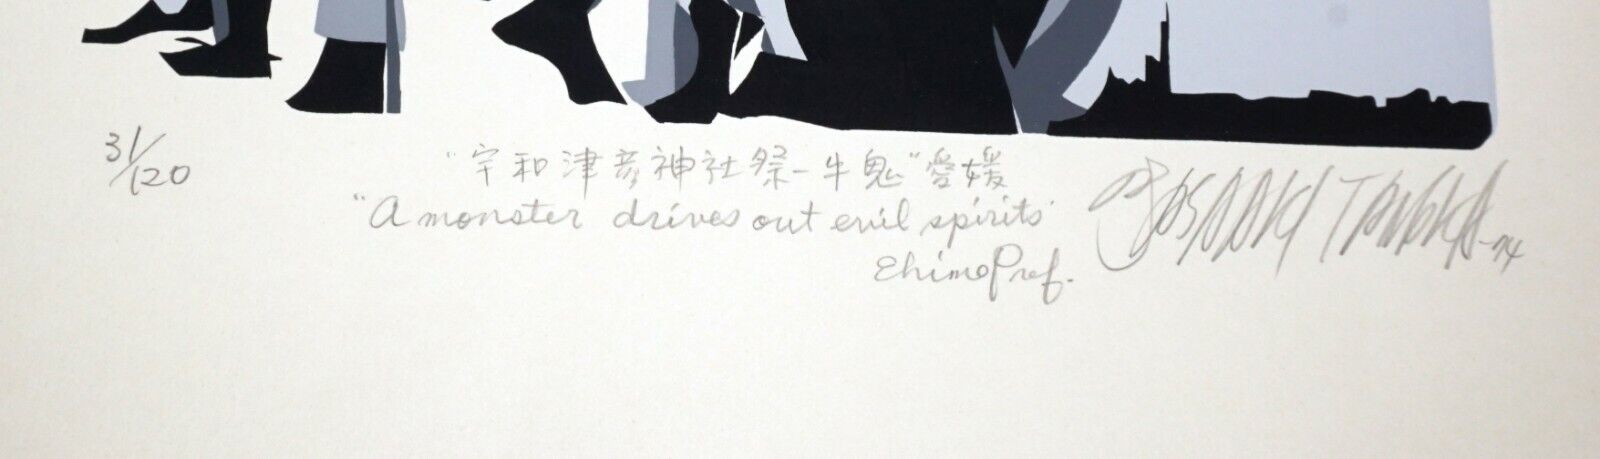 31/120
"宇和津彦神社祭-牛鬼"愛媛
"A monster drives out evil spirits"
Ehime Pref.
Tosaaki Tanaka -74